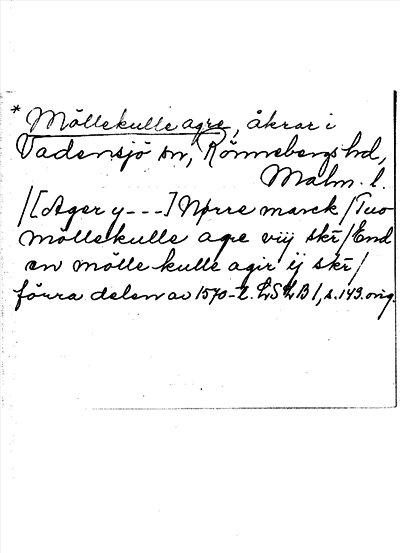 * Möllekulle agre, åkrar i
Vadensjö sn, Rönnebergs hd,
Malm. l.
/[Ager y---] Nørre marck/Tuo
möllekulle agre viij skr/End
en mölle kulle agir ij skr/
förra delen av 1570-t. LSLB 1, s. 149. orig.